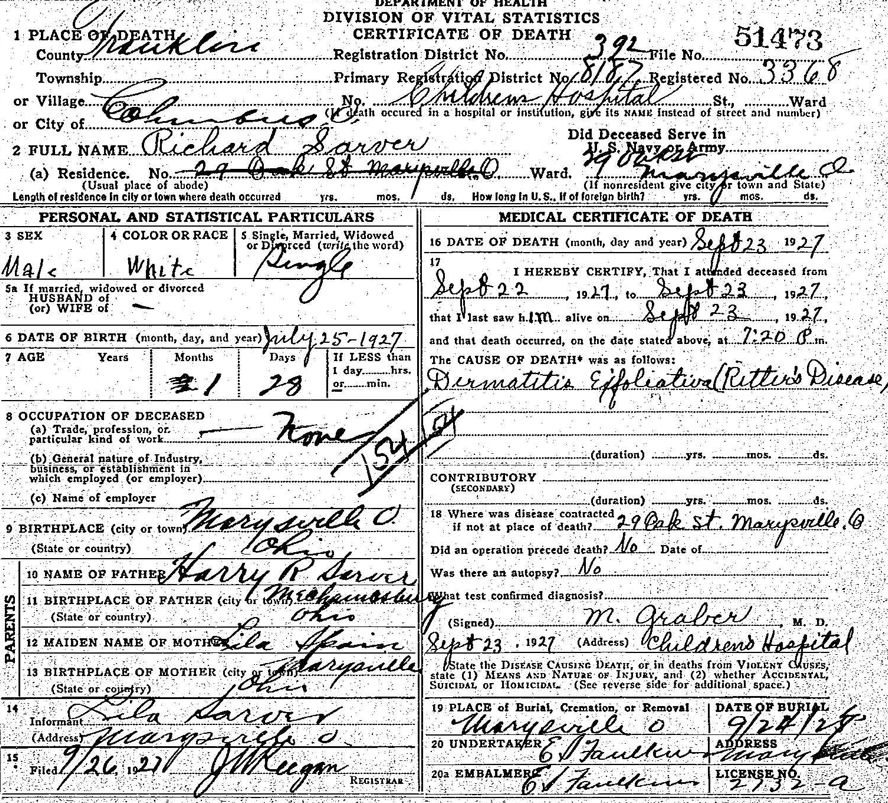 DEPARTMENT OF HEALTH
DIVISION OF VITAL STATISTICS
CERTIFICATE OF DEATH
51473
1 PLACE OF DEATH
County Franklin Registration District No. 392 File No.
Township Primary Registration District No. 8187 Registered No. 3368
or Village No. Childrens Hospital St., Ward
or City of Columbus, O. (If death occured in a hospital or institution, give its NAME instead of street and number)
Did Deceased Serve in
2 FULL NAME Richard Sarver U. S. Navy or Army
(a) Residence. No. 29 Oak St Marysville, O. Ward. 29 Oak St Marysville O
(Usual place of abode) (If nonresident give city or town and State)
Length of residence in city or town where death occurred yrs. mos. ds. How long in U. S., if of foreign birth? yrs. mos. ds.
PERSONAL AND STATISTICAL PARTICULARS
3 SEX 4 COLOR OR RACE 5 Single, Married, Widowed
or Divorced (write the word)
Male White Single
5a If married, widowed or divorced
HUSBAND of
(or) WIFE of —
6 DATE OF BIRTH (month, day, and year) July 25-1927
7 AGE Years Months Days If LESS than
1 day......hrs.
or......min.
1 28
8 OCCUPATION OF DECEASED
(a) Trade, profession, or
particular kind of work — None
(b) General nature of Industry,
business, or establishment in
which employed (or employer)
(c) Name of employer
154 154
9 BIRTHPLACE (city or town) Marysville O.
(State or country) Ohio
PARENTS
10 NAME OF FATHER Harry R Sarver
11 BIRTHPLACE OF FATHER (city or town) Mechanicsburg
(State or country) Ohio
12 MAIDEN NAME OF MOTHER Lila Spain
13 BIRTHPLACE OF MOTHER (city or town) Marysville
(State or country) Ohio
14
Informant Lila Sarver
(Address) Marysville O.
15
Filed 9/26, 1927 J W Keegan
REGISTRAR
MEDICAL CERTIFICATE OF DEATH
16 DATE OF DEATH (month, day and year) Sept 23 1927
17
I HEREBY CERTIFY, That I attended deceased from
Sept 22, 1927, to Sept 23, 1927,
that I last saw him alive on Sept 23, 1927,
and that death occurred, on the date stated above, at 7:20 P m.
The CAUSE OF DEATH* was as follows:
Dermatitis Exfoliativa (Ritter's Disease)
(duration) yrs. mos. ds.
CONTRIBUTORY
(SECONDARY)
(duration) yrs. mos. ds.
18 Where was disease contracted
if not at place of death? 29 Oak St. Marysville, O
Did an operation precede death? No Date of
Was there an autopsy? No
What test confirmed diagnosis?
(Signed) M. Graber M. D.
Sept 23, 1927 (Address) Childrens Hospital
State the DISEASE CAUSING DEATH, or in deaths from VIOLENT CAUSES,
state (1) MEANS AND NATURE OF INJURY, and (2) whether ACCIDENTAL,
SUICIDAL or HOMICIDAL. (See reverse side for additional space.)
19 PLACE of Burial, Cremation, or Removal DATE OF BURIAL
Marysville O 9/24/27
20 UNDERTAKER ADDRESS
E S Faulkner Marysville
20a EMBALMER E S Faulkner LICENSE NO.
2732-a